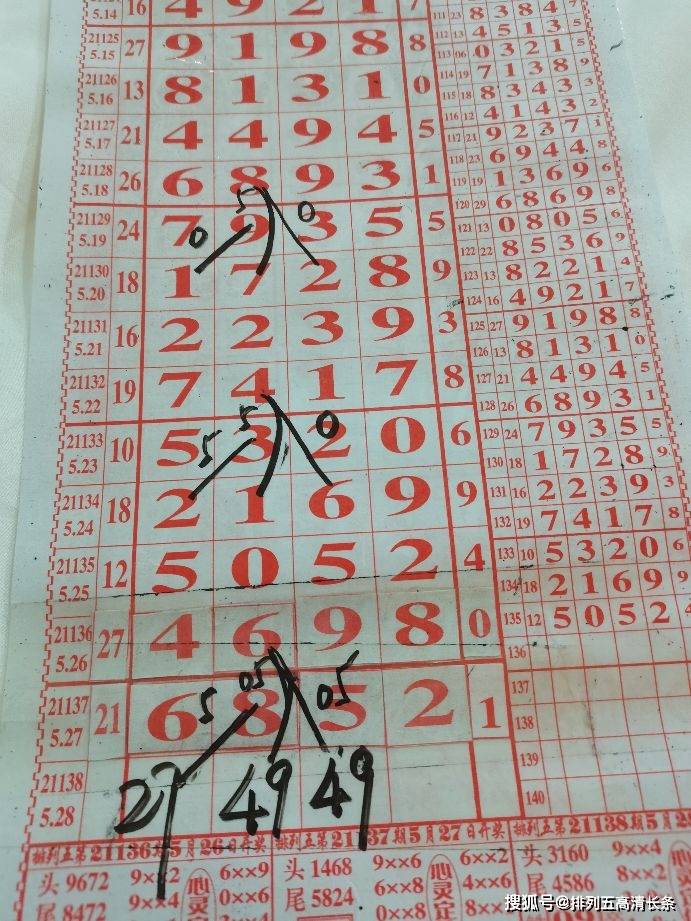 5.14 16 4 9 2 1 7
21125 5.15 27 9 1 9 8 8
21126 5.16 13 8 1 3 1 0
21127 5.17 21 4 4 9 4 5
21128 5.18 26 6 8 9 3 1
5 0
21129 5.19 24 7 9 3 5 5
0
21130 5.20 18 1 7 2 8 9
21131 5.21 16 2 2 3 9 3
21132 5.22 19 7 4 1 7 8
5 0
21133 5.23 10 5 3 2 0 6
5
21134 5.24 18 2 1 6 9 9
21135 5.25 12 5 0 5 2 4
21136 5.26 27 4 6 9 8 0
05 05
21137 5.27 21 6 8 5 2 1
5
21138 5.28
27 49 49
111 23 8 3 8 4 7
112 13 4 5 1 3 5
113 06 0 3 2 1 5
114 19 7 1 3 8 9
115 18 8 3 4 3 3
116 12 4 1 4 3 2
117 21 9 2 3 7 1
118 23 6 9 4 4 8
119 19 1 3 6 9 6
120 29 6 8 6 9 8
121 13 0 8 0 5 6
122 22 8 5 3 6 9
123 13 8 2 2 1 4
124 16 4 9 2 1 7
125 27 9 1 9 8 8
126 13 8 1 3 1 0
127 21 4 4 9 4 5
128 26 6 8 9 3 1
129 24 7 9 3 5 5
130 18 1 7 2 8 9
131 16 2 2 3 9 3
132 19 7 4 1 7 8
133 10 5 3 2 0 6
134 18 2 1 6 9 9
135 12 5 0 5 2 4
136
137
138
139
140
排列五第21136期5月26日开奖 排列五第21137期5月27日开奖 排列五第21138期5月28
头 9672 6××9 头 1468 9××6 6××2 头 3160 9××4
尾 8472 9××4 0××6 尾 5824 6××8 4××6 尾 4586 8××2
搜狐号@排列五高清长条